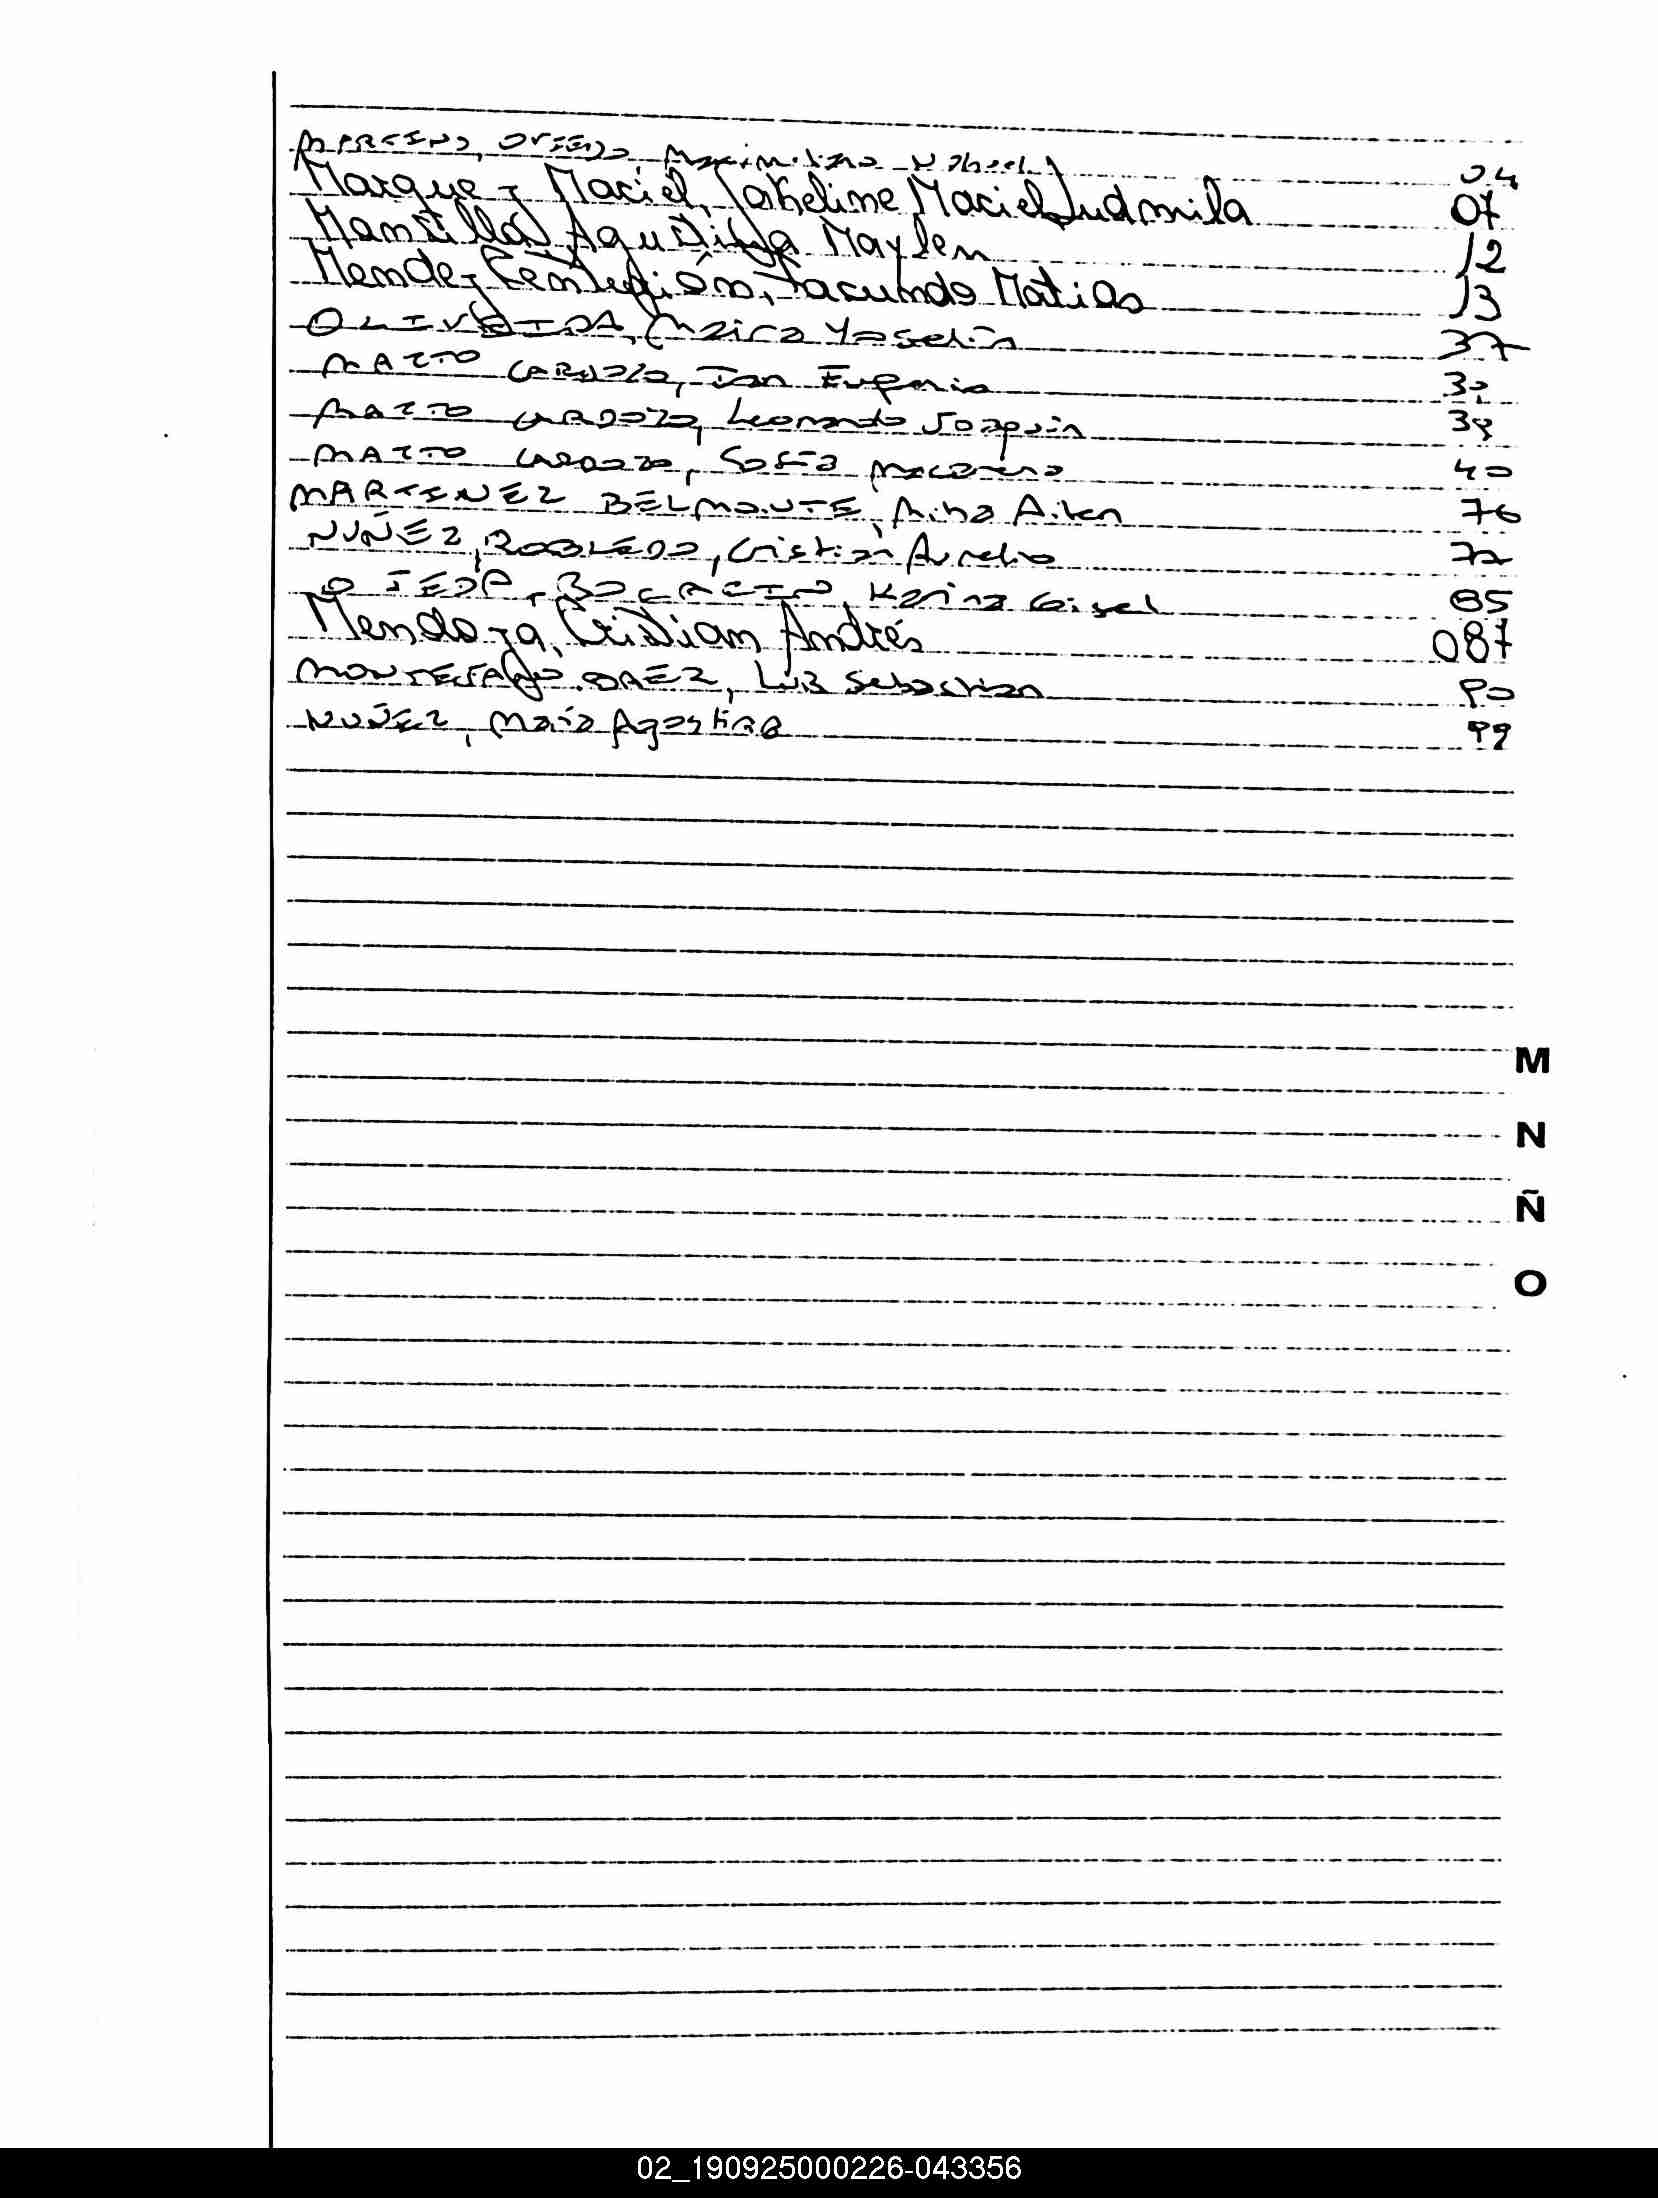 Maximiliano Nahuel 04
Marquez Maciel, Jakeline Maciel Ludmila 07
Mansilla Agustina Maylen 12
Mendez, Facundo Matias 13
OLIVEIRA, Maira Yoselin 37
MATTO CARDOZO, Ian Eugenio
MATTO CARDOZO, Leonardo Joaquin 39
MATTO CARDOZO, Sofia Macarena 40
MARTINEZ BELMONTE, Aiha Ailen 76
NUÑEZ, ROBLEDO, Cristian Aurelio 77
OJEDA, Karina Gisel 85
Mendoza, Cristian Andrés 087
BAEZ, Luiz Sebastian 90
NUÑEZ, Maria Agostina 99
M
N
Ñ
O
02_190925000226-043356